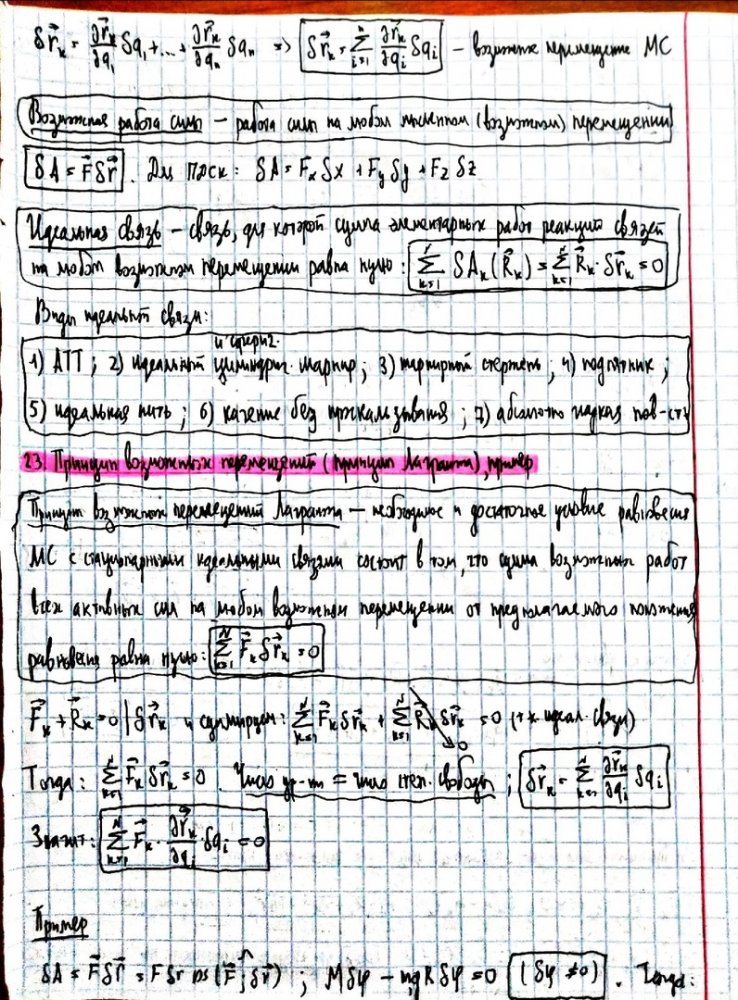 δr⃗ₖ = ∂r⃗ₖ/∂q₁ δq₁ + ... + ∂r⃗ₖ/∂qₙ δqₙ => δr⃗ₖ = Σᵢ₌₁ⁿ ∂r⃗ₖ/∂qᵢ δqᵢ – возможное перемещение МС
Возможная работа силы – работа силы на любом мысленном (возможном) перемещении
δA = F⃗δr⃗. Для ПДСК: δA = Fₓδx + F_yδy + F_zδz
Идеальная связь – связь, для которой сумма элементарных работ реакций связей
на любом возможном перемещении равна нулю: Σₖ₌₁ᴺ δAₖ(R⃗ₖ) = Σₖ₌₁ᴺ R⃗ₖ·δr⃗ₖ = 0
Виды идеальной связи:
и сферич.
1) АТТ; 2) идеальный цилиндрич. шарнир; 3) шарнирный стержень; 4) подпятник;
5) идеальная нить; 6) качение без проскальзывания; 7) абсолютно гладкая пов-сть
23. Принцип возможных перемещений (принцип Лагранжа), пример
Принцип возможных перемещений Лагранжа – необходимое и достаточное условие равновесия
МС с стационарными идеальными связями состоит в том, что сумма возможных работ
всех активных сил на любом возможном перемещении от предполагаемого положения
равновесия равна нулю: Σₖ₌₁ᴺ F⃗ₖδr⃗ₖ = 0
F⃗ₖ + R⃗ₖ = 0 | δr⃗ₖ и суммируем: Σₖ₌₁ᴺ F⃗ₖδr⃗ₖ + Σₖ₌₁ᴺ R⃗ₖδr⃗ₖ = 0 (т.к. идеал. связи)
0
Тогда: Σₖ₌₁ᴺ F⃗ₖδr⃗ₖ = 0. Число ур-ий = число степ. свободы; δr⃗ₖ = Σₖ₌₁ᴺ ∂r⃗ₖ/∂qᵢ δqᵢ
Значит: Σₖ₌₁ᴺ F⃗ₖ · ∂r⃗ₖ/∂qᵢ · δqᵢ = 0
Пример
δA = F⃗δr⃗ = Fδr cos(F⃗;^δr⃗) ; Mδφ – mgRδφ = 0 (δφ ≠ 0). Тогда: